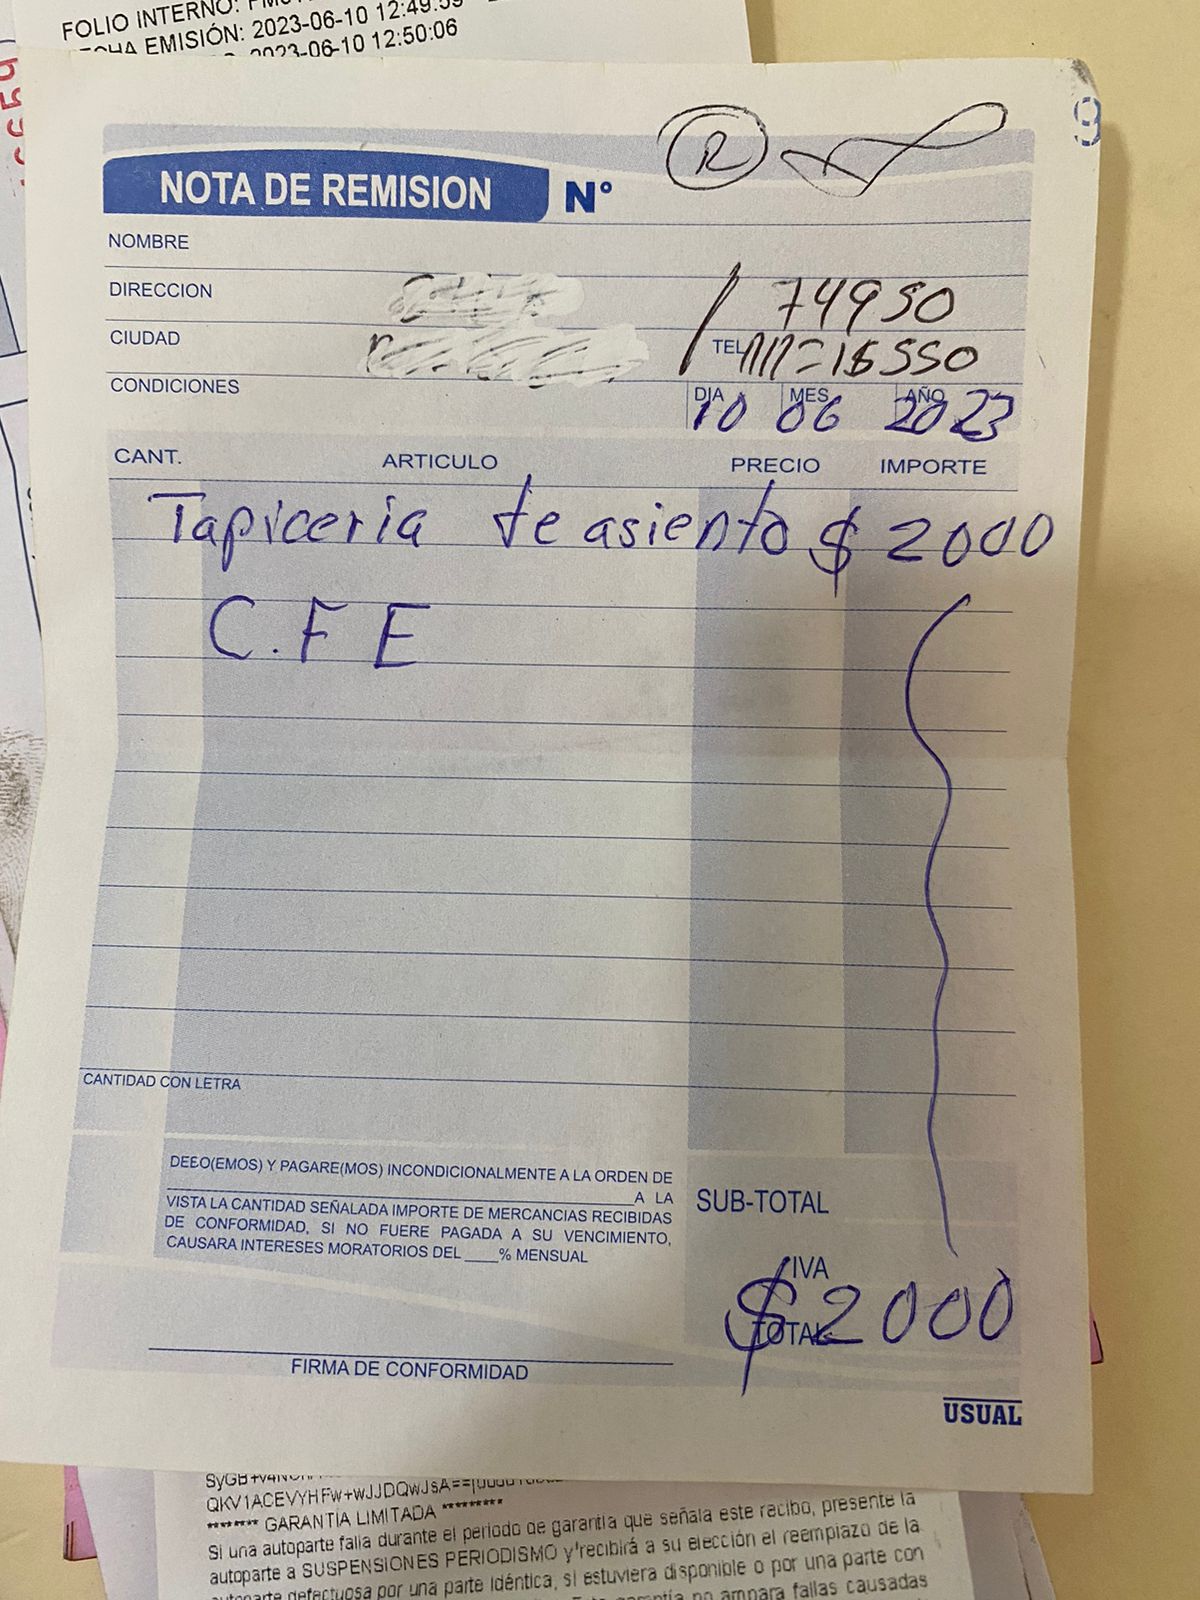 FOLIO INTERNO:
FECHA EMISIÓN: 2023-06-10 12:49:59
2023-06-10 12:50:06
9
R
NOTA DE REMISION N°
NOMBRE
DIRECCION / 74950
CIUDAD TEL
CONDICIONES DIA 10 MES 06 AÑO 2023
CANT. ARTICULO PRECIO IMPORTE
Tapiceria de asiento $ 2000
C.F E
CANTIDAD CON LETRA
DEBO(EMOS) Y PAGARE(MOS) INCONDICIONALMENTE A LA ORDEN DE
A LA
VISTA LA CANTIDAD SEÑALADA IMPORTE DE MERCANCIAS RECIBIDAS
DE CONFORMIDAD, SI NO FUERE PAGADA A SU VENCIMIENTO,
CAUSARA INTERESES MORATORIOS DEL ____% MENSUAL
SUB-TOTAL
IVA
TOTAL $2000
FIRMA DE CONFORMIDAD
USUAL
QKV1ACEVYHFw+wJJDQwJsA==
******* GARANTÍA LIMITADA *********
Si una autoparte falla durante el periodo de garantía que señala este recibo, presente la
autoparte a SUSPENSIONES PERIODISMO y recibirá a su elección el reemplazo de la
autoparte defectuosa por una parte idéntica, si estuviera disponible o por una parte con
no ampara fallas causadas